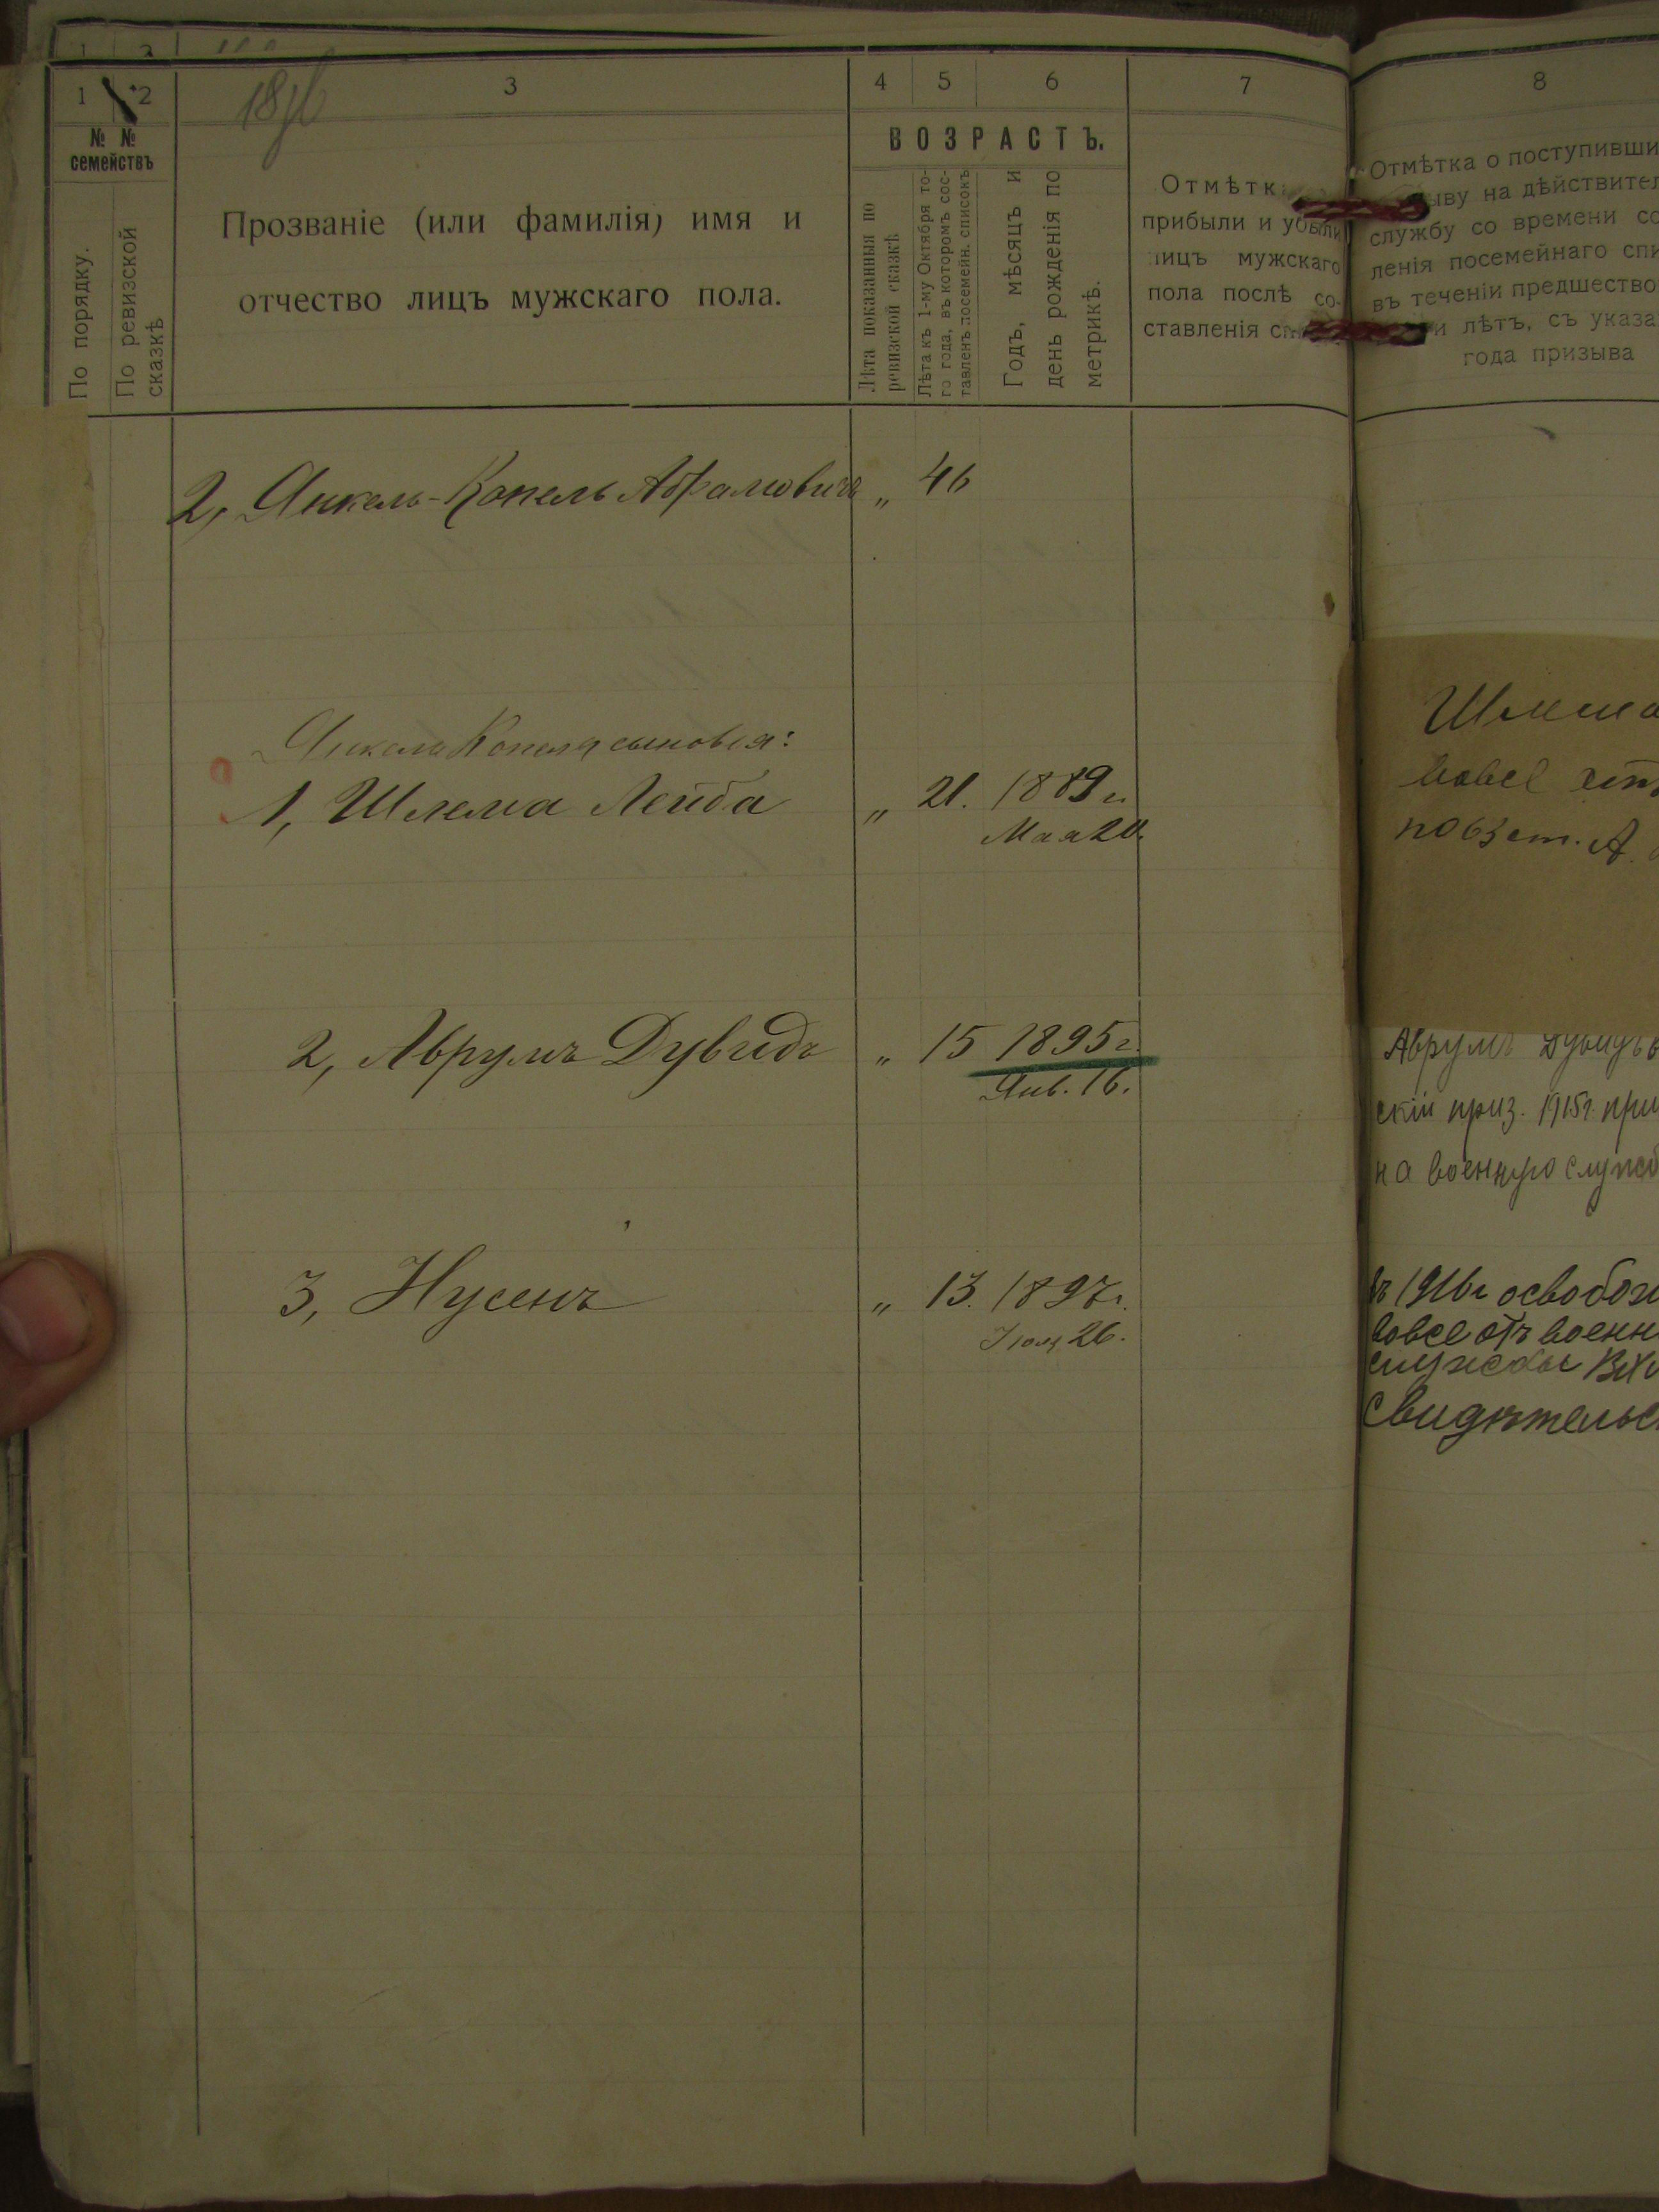 1 2 3 4 5 6 7 8
№ № семействъ
По порядку.
По ревизской сказкѣ
Прозваніе (или фамилія) имя и
отчество лицъ мужскаго пола.
ВОЗРАСТЪ.
Лѣта показанныя по
ревизской сказкѣ
Лѣта къ 1-му Октября то-
го года, въ которомъ сос-
тавленъ посемейн. списокъ
Годъ, мѣсяцъ и
день рожденія по
метрикѣ.
Отмѣтк
прибыли и убыли
лицъ мужскаго
пола послѣ со-
ставленія сп
Отмѣтка о поступивши
ыву на дѣйствител
службу со времени со
ленія посемейнаго спи
въ теченіи предшество
и лѣтъ, съ указа
года призыва
2, Янкель-Копель Абрамовичъ „ 46
Янкеля Копеля сыновья:
1, Шлема Лейба „ 21. 1889 г.
Мая 20.
2, Аврумъ Дувидъ „ 15 1895 г.
Янв. 16.
3, Нусенъ „ 13. 1897 г.
Іюля 26.
Шлема
повѣст. А.
Аврумъ Дувидъ
скій приз. 1915 г. при
на военную служб
въ 1916 г освобож
вовсе отъ военн
службы
свидѣтельс